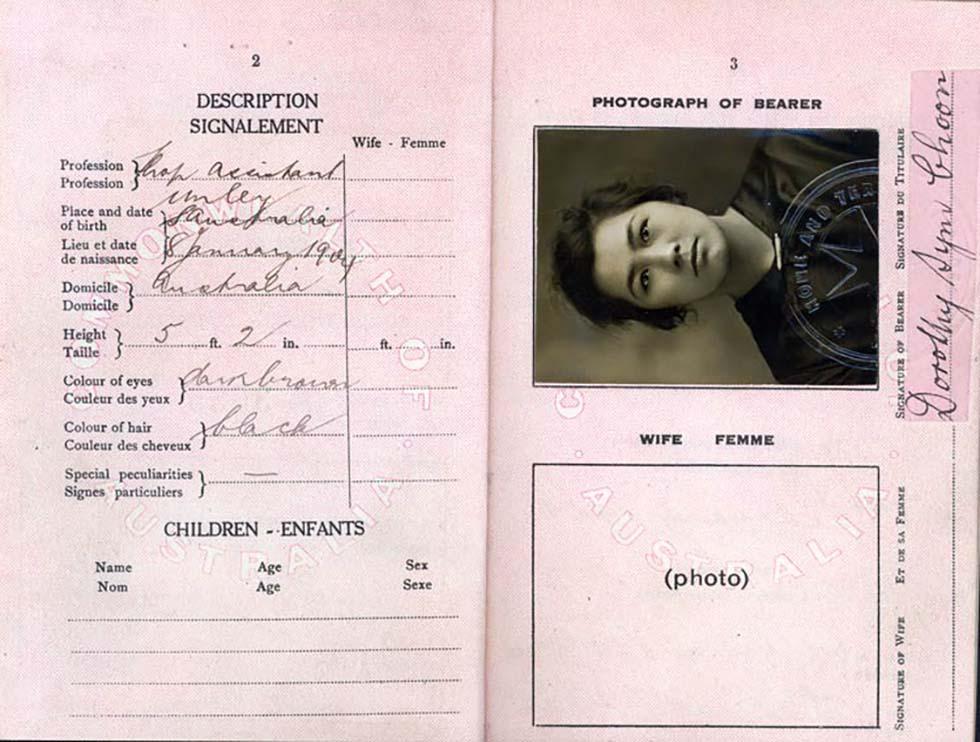 2
DESCRIPTION
SIGNALEMENT
Wife - Femme
Profession
Profession
Shop Assistant
Unley
Place and date
of birth
S Australia
Lieu et date
de naissance
8 January 1904
Domicile
Domicile
Australia
Height
Taille
5 ft. 2 in.
ft. in.
Colour of eyes
Couleur des yeux
dark brown
Colour of hair
Couleur des cheveux
black
Special peculiarities
Signes particuliers
—
CHILDREN - ENFANTS
Name Age Sex
Nom Age Sexe
COMMONWEALTH OF AUSTRALIA
3
PHOTOGRAPH OF BEARER
HOME AND TER
SIGNATURE OF BEARER SIGNATURE DU TITULAIRE
Dorothy Sym Choon
WIFE FEMME
(photo)
SIGNATURE OF WIFE ET DE SA FEMME
AUSTRALIA